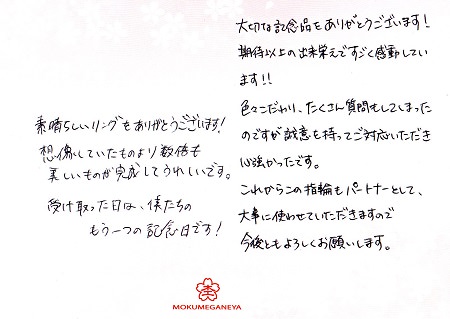 大切な記念品をありがとうございます!
期待以上の出来栄えですごく感動してい
ます!!
色々こだわり、たくさん質問もしてしまった
のですが誠意を持ってご対応いただき
心強かったです。
これからこの指輪もパートナーとして、
大事に使わせていただきますので
今後ともよろしくお願いします。
素晴らしいリングをありがとうございます!
想像していたものより数倍も
美しいものが完成してうれしいです。
受け取った日は、僕たちの
もう一つの記念日です!
MOKUMEGANEYA